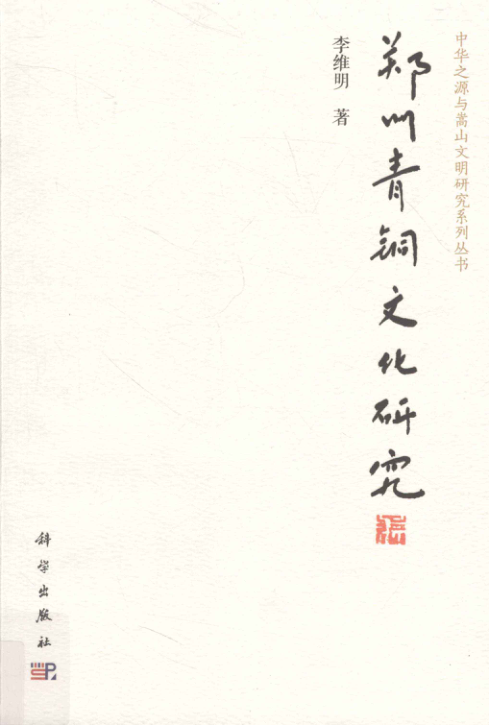 中华之源与嵩山文明研究系列丛书
郑州青铜文化研究
李维明 著
科学出版社
SP